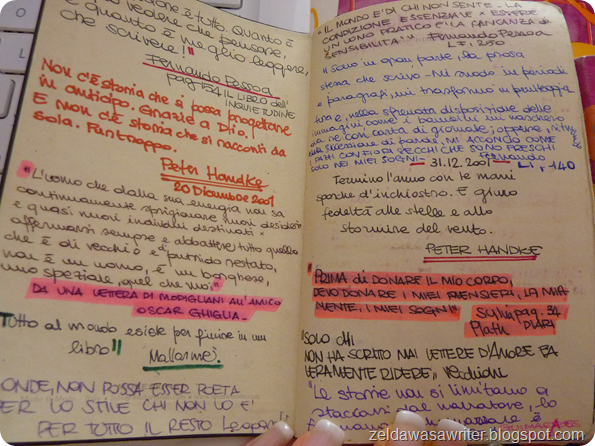 è tutto. Quanto è
vedere che pensare,
e quanto è meglio leggere,
che scrivere!"
Fernando Pessoa
pag 154 IL LIBRO dell'
INQUIETUDINE
Non c'è storia che si possa progettare
in anticipo. Grazie a Dio.!
E non c'è storia che si racconti da
sola. Purtroppo.
Peter Handke
20 Dicembre 2001
"L'uomo che dalla sua energia non sa
continuamente sprigionare nuovi desideri
e quasi nuovi individui destinati a
affermarsi sempre e abbattere tutto quello
che è di vecchio e di putrido restato,
non è un uomo, è un borghese,
uno speziale, quel che vuoi"
DA UNA LETTERA DI MODIGLIANI ALL'AMICO
OSCAR GHIGLIA.
Tutto al mondo esiste per finire in un
libro"
Mallarmé.
ONDE, NON POSSA ESSER POETA
PER LO STILE CHI NON LO È
PER TUTTO IL RESTO Leopardi
"IL MONDO È DI CHI NON SENTE. LA
CONDIZIONE ESSENZIALE X ESSERE
UN UOMO PRATICO È LA MANCANZA di
SENSIBILITÀ" Fernando Pessoa
"Sono in gran parte, la prosa
stessa che scrivo. Mi snodo in periodi
e paragrafi, mi trasformo in punteggia
tura e, nella sfrenata disposizione delle
immagini come i bambini mi maschero
da re con carta di giornale, oppure,
successione di parole, MI ACCONCIO COME
I PAZZI CON FIORI SECCHI CHE SONO FRESCHI
SOLO NEI MIEI SOGNI 31.12.2001 Fernando
LI, 140
Termino l'anno con le mani
sporche d'inchiostro. E giuro
fedeltà alle stelle e allo
stormire del vento.
PETER HANDKE
PRIMA di DONARE IL MIO CORPO,
DEVO DONARE I MIEI PENSIERI, LA MIA
MENTE, I MIEI SOGNI"
Sylvia pag. 34
Plath DIARI
SOLO chi
NON HA SCRITTO MAI LETTERE D'AMORE FA
VERAMENTE RIDERE,, Vecchioni
"Le storie non si limitano a
staccarsi dal narratore, lo
zeldawasawriter.blogspot.com